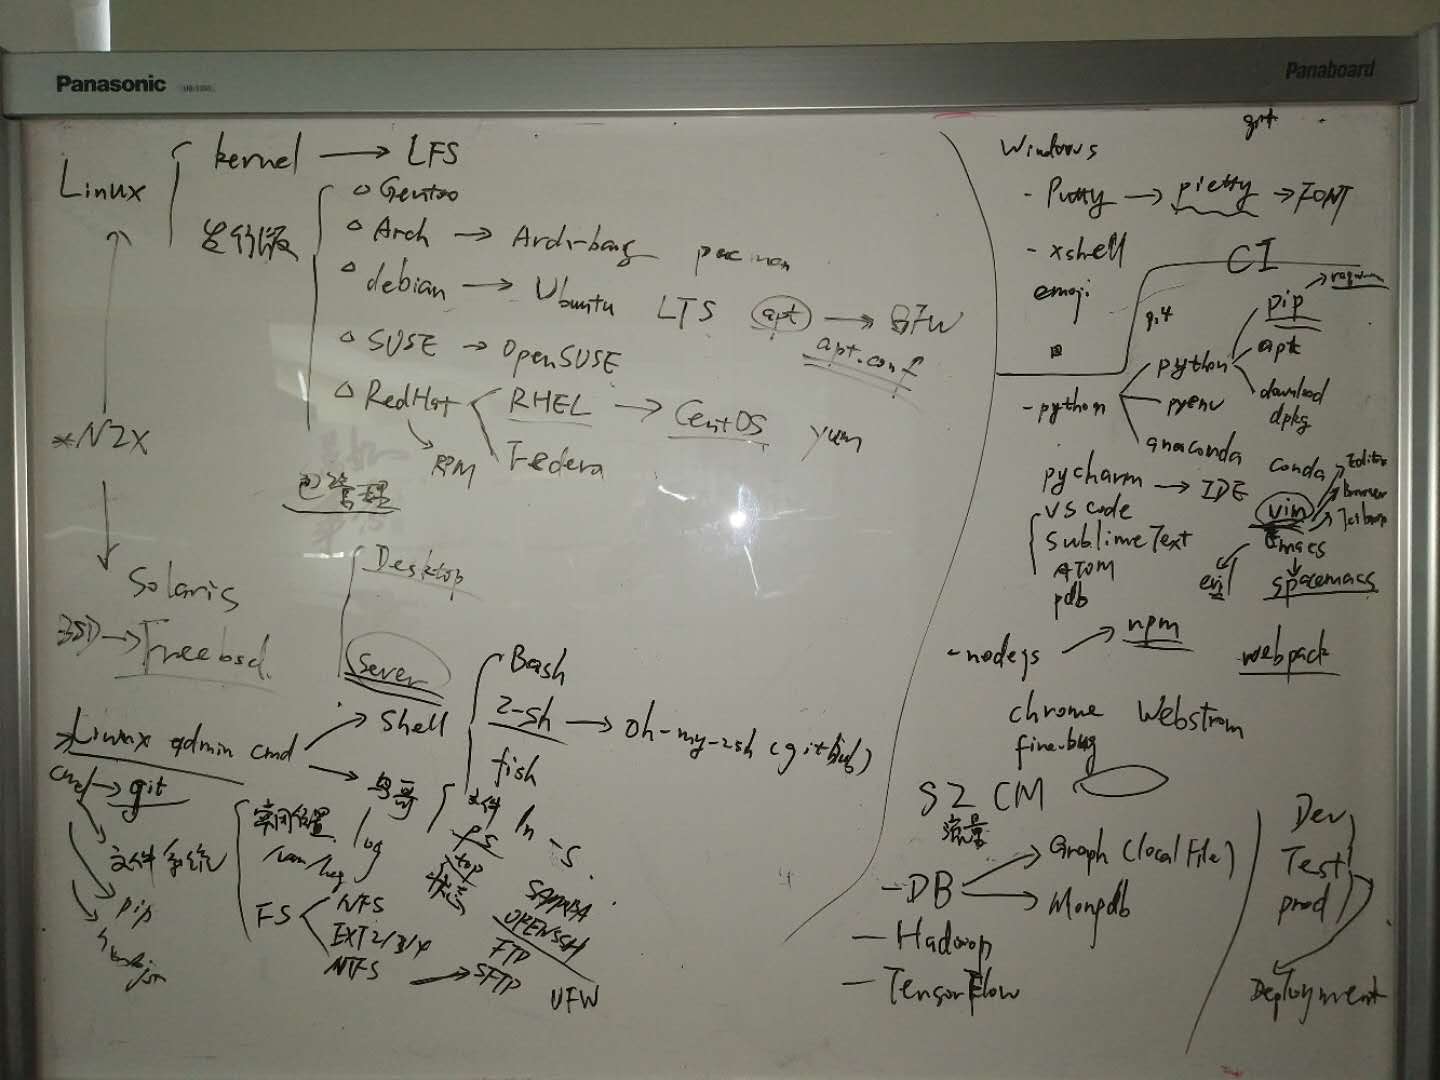 Panasonic
Panaboard
Linux
kernel → LFS
发行版
Gentoo
Arch → Arch-bang pacman
debian → Ubuntu LTS apt → GFW
apt.conf
SUSE → OpenSUSE
RedHat RHEL → CentOS yum
RPM Federa
包管理
*N2X
Solaris
BSD → Freebsd
Desktop
Sever
Linux admin cmd
Shell
Bash
Z-sh → oh-my-zsh (github)
fish
鸟哥
cmd → git
文件系统
pip
log
文件 ln -s
ps
top
FS
NFS
EXT2/3/4
NTFS → SFTP
SAMBA
OPENSSH
FTP
UFW
Windows
- Putty → pietty → FONT
- xshell
emoji
CI
git
- python
python
pip
apt
download
dpkg
pyenv
anaconda
conda
pycharm → IDE
VS code
Sublime Text
ATOM
pdb
vim
Editor
Browser
emacs
evil
spacemacs
- nodejs → npm
webpack
chrome
Webstrom
fire-bug
S2 CM
- DB
Graph (local File)
Mongdb
- Hadoop
- TensorFlow
Dev
Test
prod
Deployment